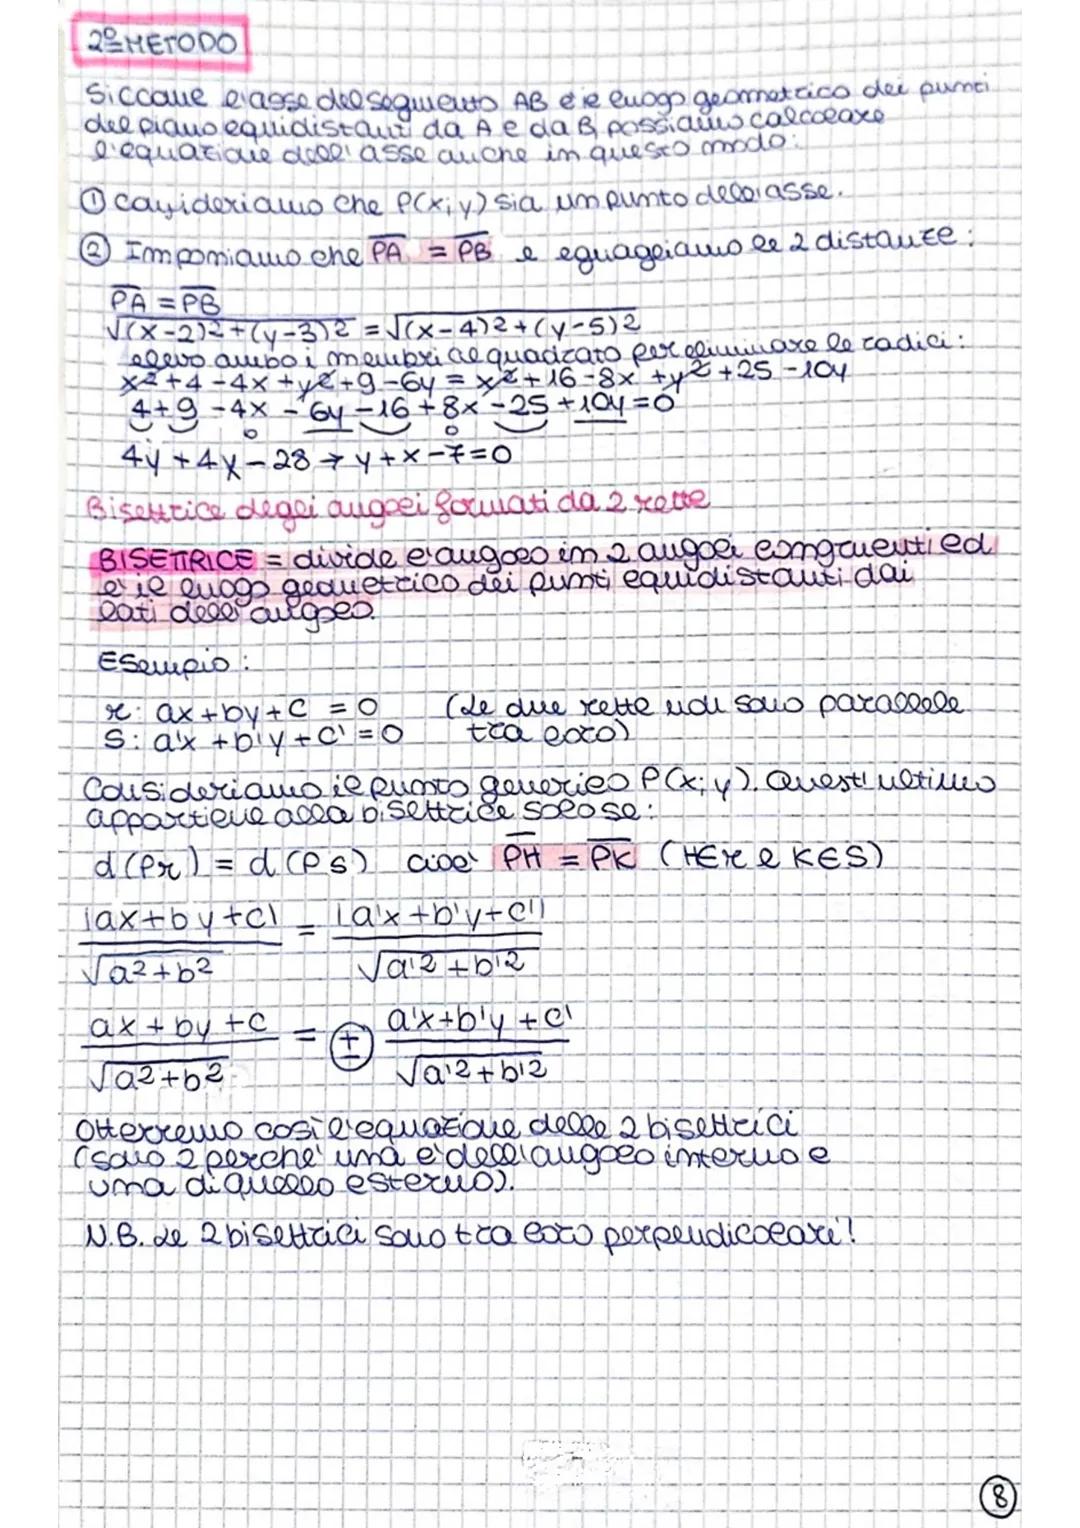 2º METODO
Siccome l'asse del segmento AB è il luogo geometrico dei punti
del piano equidistanti da A e da B, possiamo calcolare
l'equazione dell'asse anche in questo modo:
① Consideriamo che P(x;y) sia un punto dell'asse.
② Imponiamo che PA = PB e eguagliamo le 2 distanze:
PA = PB
√(x-2)2+(y-3)2 = √(x-4)2+(y-5)2
elevo ambo i membri al quadrato per eliminare le radici:
x2+4-4x+y2+9-6y = x2+16-8x+y2+25-10y
4+9-4x-6y-16+8x-25+10y=0
4y+4x-28 → y+x-7=0
Bisettrice degli angoli formati da 2 rette
BISETTRICE = divide l'angolo in 2 angoli congruenti ed
è il luogo geometrico dei punti equidistanti dai
lati dell'angolo.
Esempio:
r: ax+by+c = 0 (Le due rette non sono parallele
s: a'x+b'y+c'=0 tra loro)
Consideriamo il punto generico P(x;y). Quest'ultimo
appartiene alla bisettrice solo se:
d(Pr) = d(Ps) cioè PH = PK (H∈r e K∈S)
|ax+by+c| = |a'x+b'y+c'|
√a2+b2 √a'2+b'2
ax+by+c = ± a'x+b'y+c'
√a2+b2 √a'2+b'2
Otterremo così l'equazione delle 2 bisettrici
(sono 2 perché una è dell'angolo interno e
una di quello esterno).
N.B. Le 2 bisettrici sono tra loro perpendicolari!
8